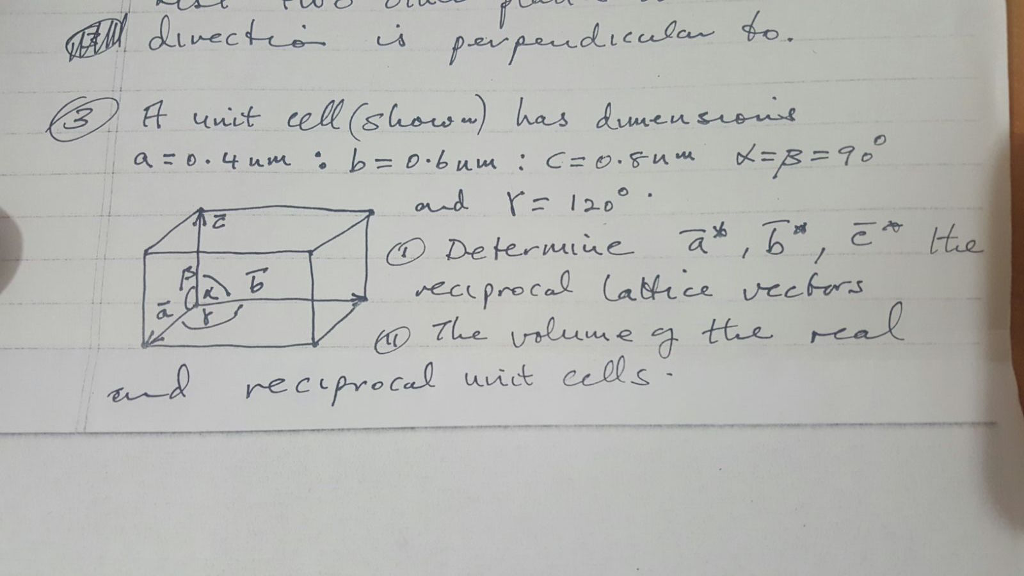 direction is perpendicular to.
③ A unit cell (shown) has dimensions
a = 0.4 nm : b = 0.6 nm : c = 0.8 nm α = β = 90°
and γ = 120°.
c̄
① Determine ā*, b̄*, c̄* the
β α b̄
reciprocal lattice vectors
ā γ
② The volume of the real
and reciprocal unit cells.